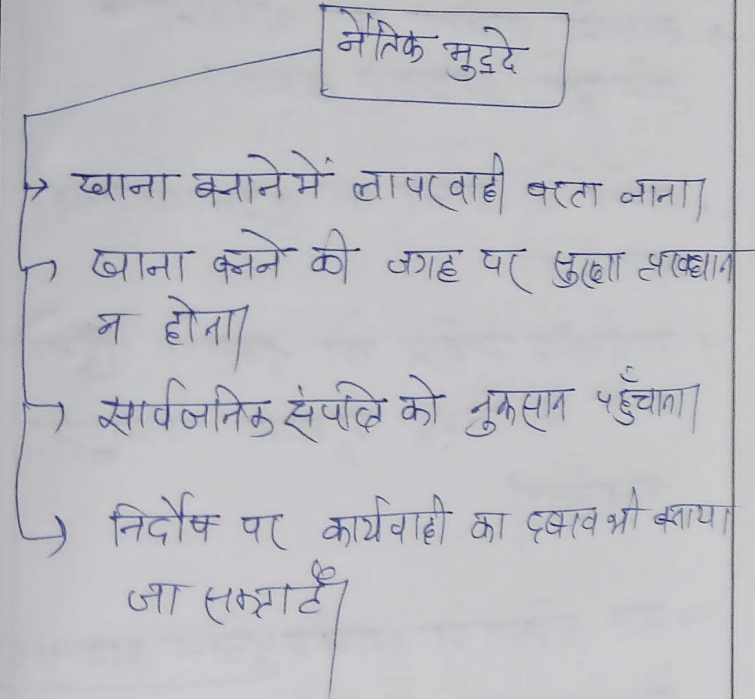 नैतिक मुद्दे
खाना बनाने में लापरवाही बरता जाना।
खाना बनने की जगह पर सुरक्षा प्रावधान
न होना।
सार्वजनिक संपत्ति को नुकसान पहुँचाना।
निर्दोष पर कार्यवाही का दबाव भी बनाया
जा सकता है।